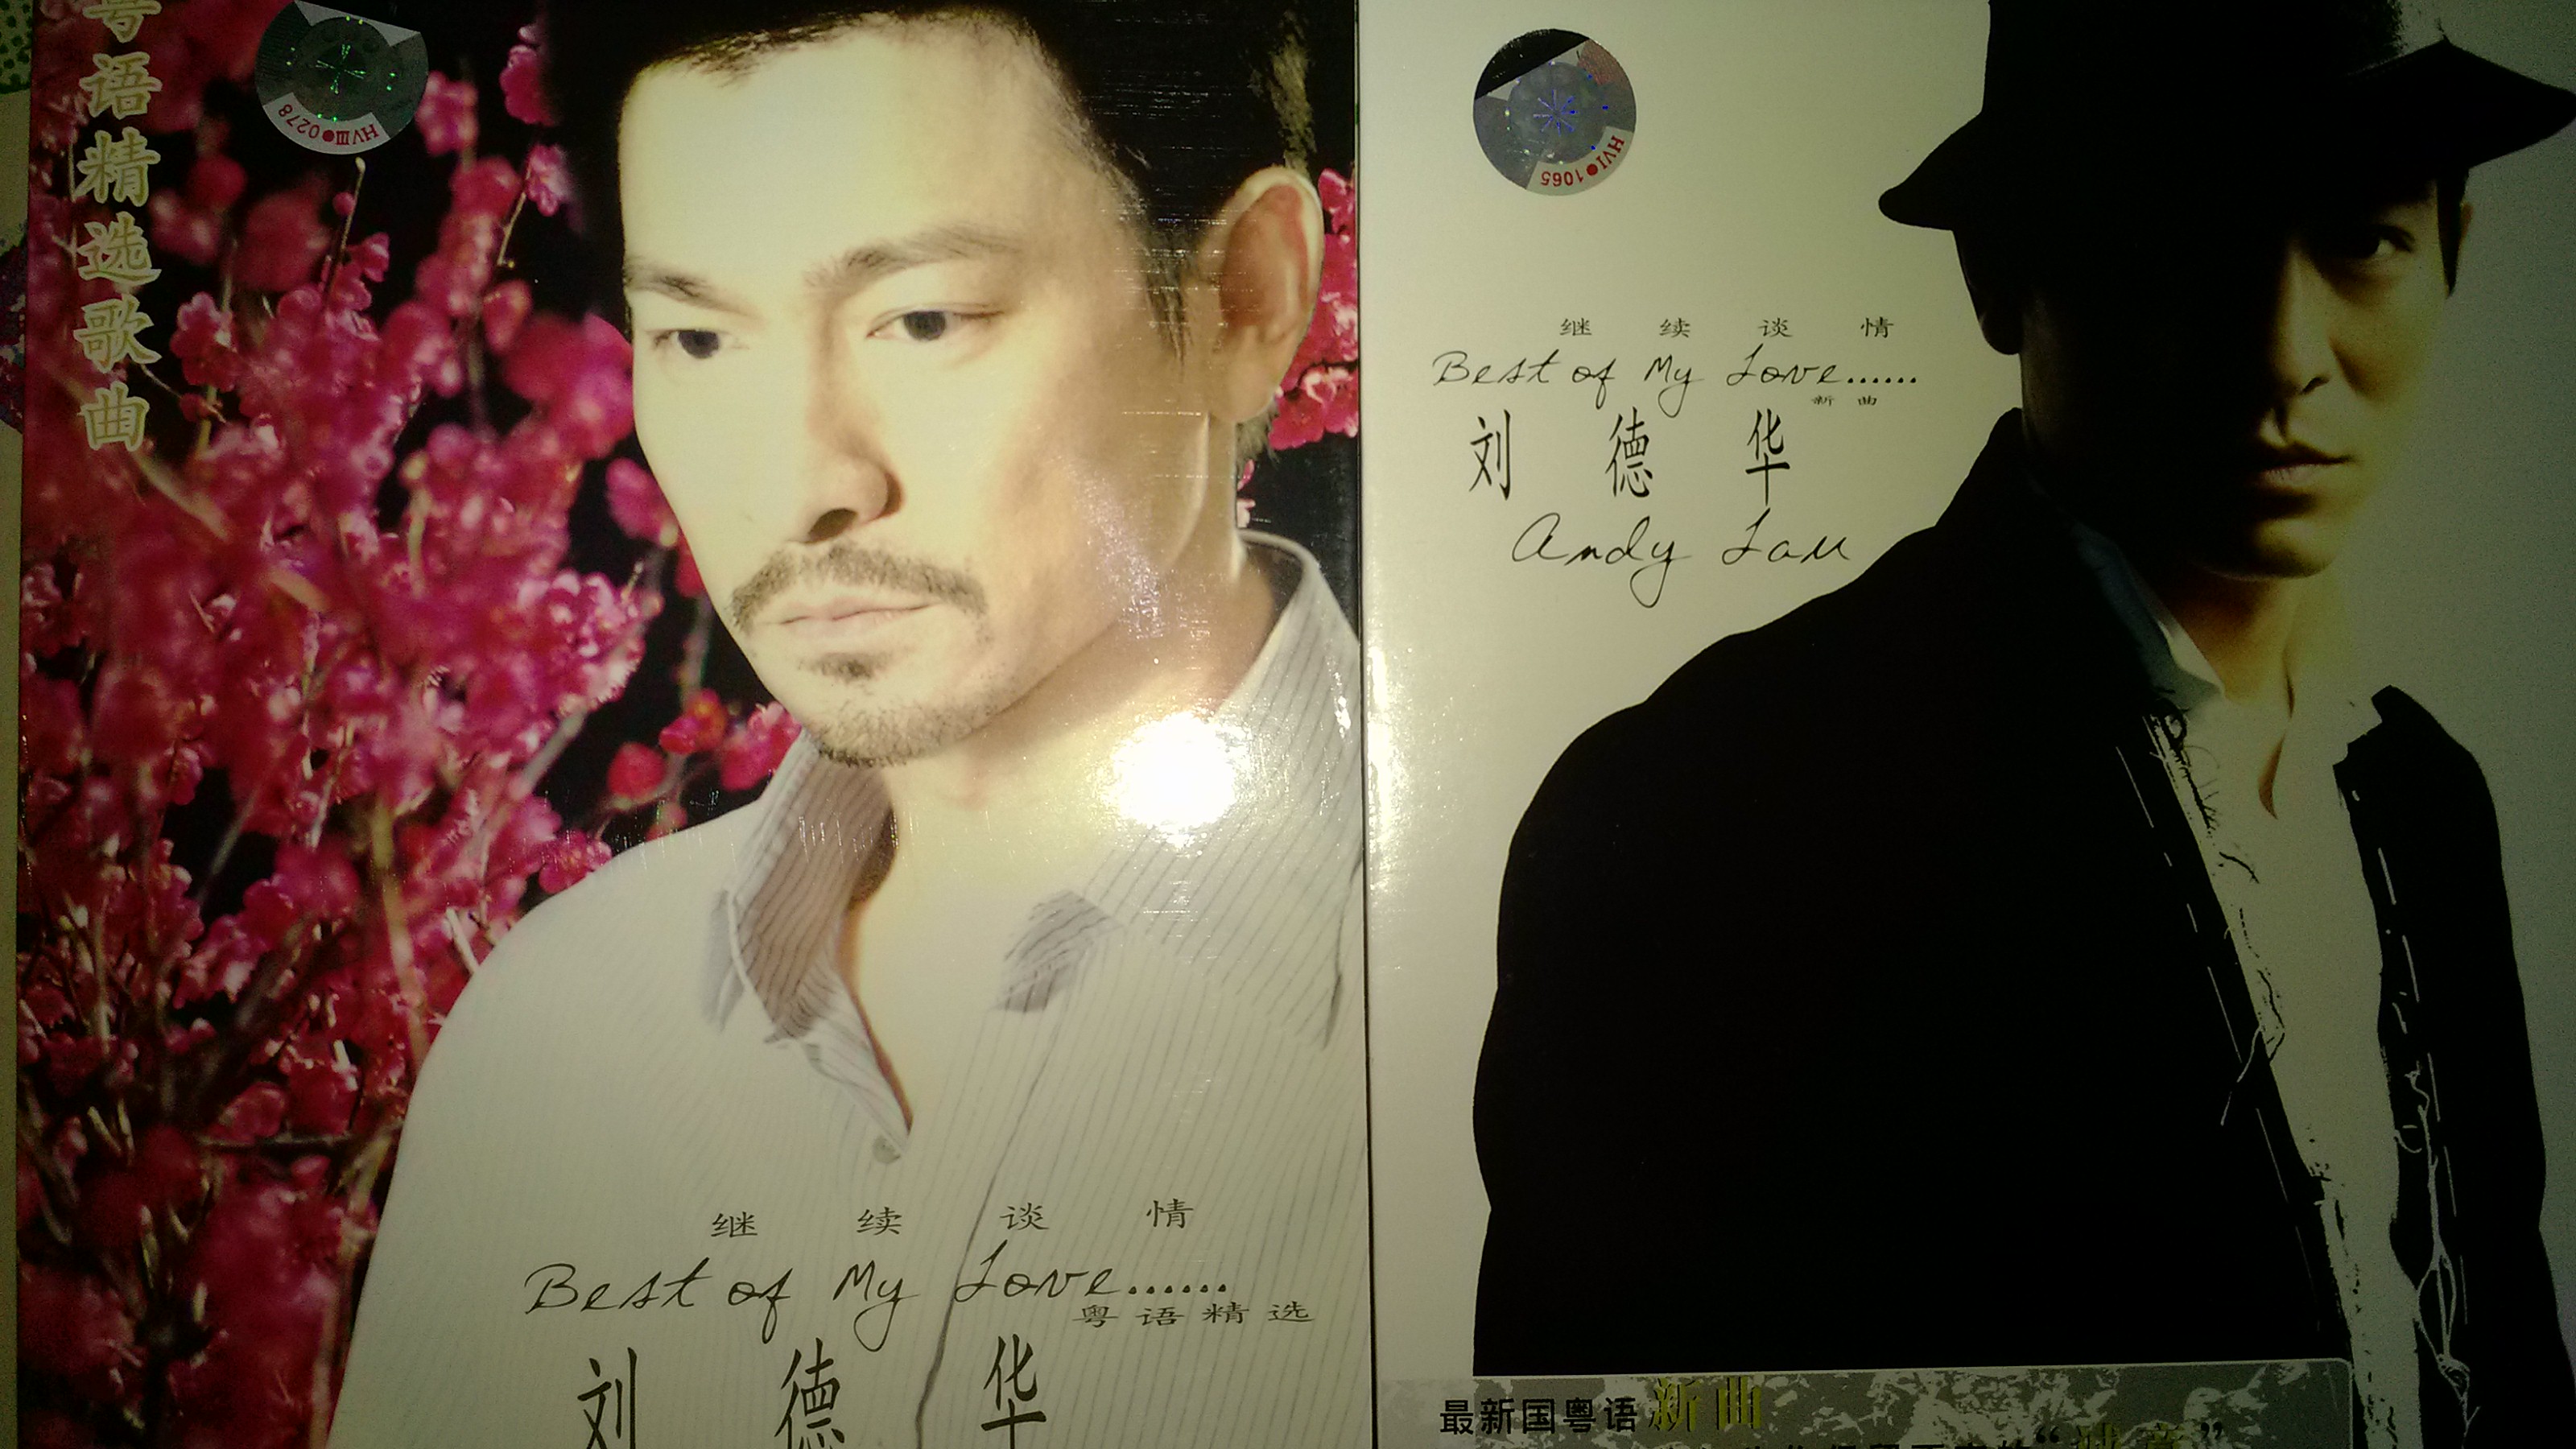 粤语精选歌曲
HVIII●0278
继续谈情
Best of My Love......
粤语精选
刘德华
HVI●1065
继续谈情
Best of My Love......
新曲
刘德华
Andy Lau
最新国粤语新曲